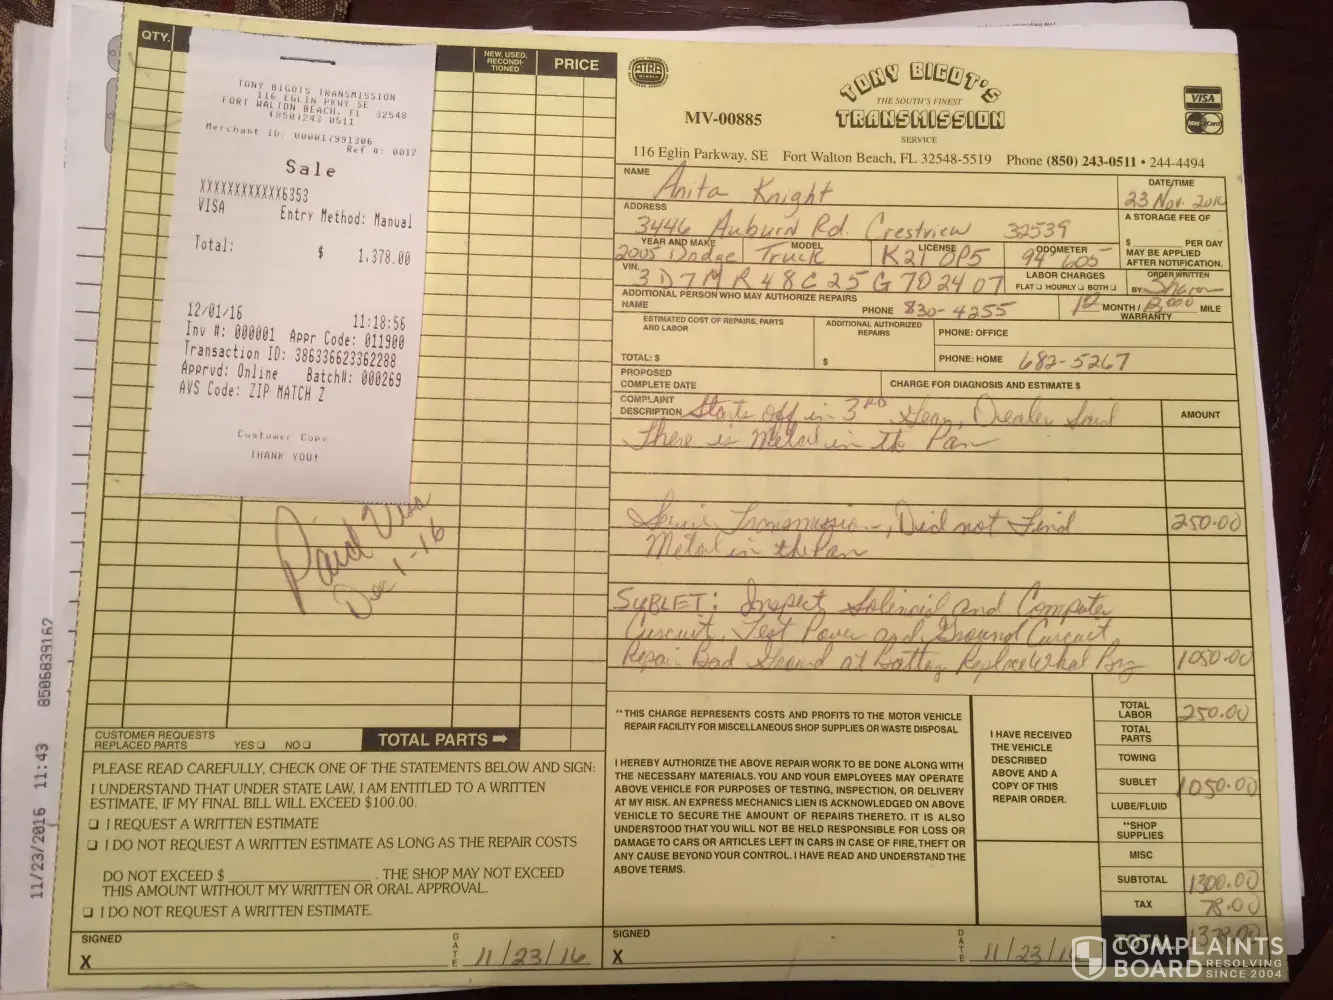 QTY.
NEW, USED, RECONDI-TIONED
PRICE
TONY BIGOTS TRANSMISSION
116 EGLIN PKWY SE
FORT WALTON BEACH, FL 32548
(850)243 0511
Merchant ID: 000017991306
Ref #: 0012
Sale
XXXXXXXXXXXX6353
VISA Entry Method: Manual
Total: $ 1,378.00
12/01/16 11:18:56
Inv #: 000001 Appr Code: 011900
Transaction ID: 386336623362288
Apprvd: Online Batch#: 000269
AVS Code: ZIP MATCH Z
Customer Copy
THANK YOU!
Paid Visa
Dec 1-16
CUSTOMER REQUESTS
REPLACED PARTS YES ☐ NO ☐
TOTAL PARTS ➡
PLEASE READ CAREFULLY, CHECK ONE OF THE STATEMENTS BELOW AND SIGN:
I UNDERSTAND THAT UNDER STATE LAW, I AM ENTITLED TO A WRITTEN
ESTIMATE, IF MY FINAL BILL WILL EXCEED $100.00.
☐ I REQUEST A WRITTEN ESTIMATE
☐ I DO NOT REQUEST A WRITTEN ESTIMATE AS LONG AS THE REPAIR COSTS
DO NOT EXCEED $ ____________ . THE SHOP MAY NOT EXCEED
THIS AMOUNT WITHOUT MY WRITTEN OR ORAL APPROVAL.
☐ I DO NOT REQUEST A WRITTEN ESTIMATE.
SIGNED
X
DATE 11/23/16
11/23/2016 11:43 8506839162
ATRA
MV-00885
TONY BIGOT'S
THE SOUTH'S FINEST
TRANSMISSION
SERVICE
VISA
MasterCard
116 Eglin Parkway, SE Fort Walton Beach, FL 32548-5519 Phone (850) 243-0511 • 244-4494
NAME Anita Knight
DATE/TIME 23 Nov. 2016
ADDRESS 3446 Auburn Rd. Crestview 32539
A STORAGE FEE OF
$ ____ PER DAY
MAY BE APPLIED
AFTER NOTIFICATION.
YEAR AND MAKE 2005 Dodge
MODEL Truck
LICENSE K21 OP5
ODOMETER 94 605
VIN. 3D7MR48C25G702407
LABOR CHARGES
FLAT ☐ HOURLY ☐ BOTH ☐
ORDER WRITTEN
BY: Sharon
ADDITIONAL PERSON WHO MAY AUTHORIZE REPAIRS
NAME PHONE 830-4255
12 MONTH / 12000 MILE
WARRANTY
ESTIMATED COST OF REPAIRS, PARTS
AND LABOR
TOTAL: $
ADDITIONAL AUTHORIZED
REPAIRS
$
PHONE: OFFICE
PHONE: HOME 682-5267
PROPOSED
COMPLETE DATE
CHARGE FOR DIAGNOSIS AND ESTIMATE $
COMPLAINT
DESCRIPTION Starts off in 3RD Gear, Dealer Said
AMOUNT
There is Metal in the Pan
Service Transmission, Did not Find 250.00
Metal in the Pan
SUBLET: Inspect Solenoid and Computer
Curcuit, Test Power and Ground Curcuit
Repair Bad Ground at Battery Replace 1050.00
**THIS CHARGE REPRESENTS COSTS AND PROFITS TO THE MOTOR VEHICLE
REPAIR FACILITY FOR MISCELLANEOUS SHOP SUPPLIES OR WASTE DISPOSAL
I HEREBY AUTHORIZE THE ABOVE REPAIR WORK TO BE DONE ALONG WITH
THE NECESSARY MATERIALS. YOU AND YOUR EMPLOYEES MAY OPERATE
ABOVE VEHICLE FOR PURPOSES OF TESTING, INSPECTION, OR DELIVERY
AT MY RISK. AN EXPRESS MECHANICS LIEN IS ACKNOWLEDGED ON ABOVE
VEHICLE TO SECURE THE AMOUNT OF REPAIRS THERETO. IT IS ALSO
UNDERSTOOD THAT YOU WILL NOT BE HELD RESPONSIBLE FOR LOSS OR
DAMAGE TO CARS OR ARTICLES LEFT IN CARS IN CASE OF FIRE, THEFT OR
ANY CAUSE BEYOND YOUR CONTROL. I HAVE READ AND UNDERSTAND THE
ABOVE TERMS.
I HAVE RECEIVED
THE VEHICLE
DESCRIBED
ABOVE AND A
COPY OF THIS
REPAIR ORDER.
TOTAL LABOR 250.00
TOTAL PARTS
TOWING
SUBLET 1050.00
LUBE/FLUID
**SHOP SUPPLIES
MISC
SUBTOTAL 1300.00
TAX 78.00
TOTAL 1378.00
SIGNED
X
DATE 11/23/16
COMPLAINTS
BOARD RESOLVING
SINCE 2004